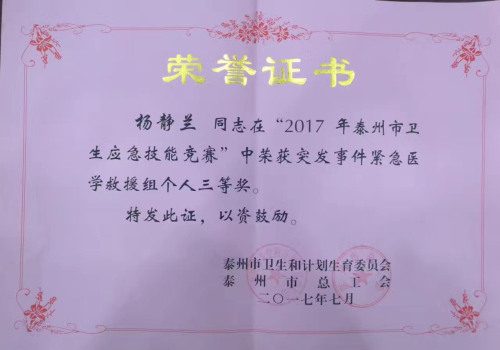 荣誉证书
杨静兰 同志在“2017 年泰州市卫
生应急技能竞赛”中荣获突发事件紧急医
学救援组个人三等奖。
特发此证，以资鼓励。
泰州市卫生和计划生育委员会
泰州市总工会
二〇一七年七月